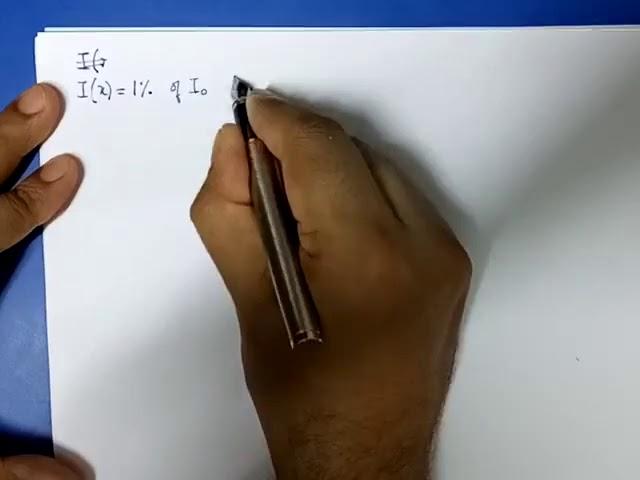 I(
I(x) = 1% of I₀